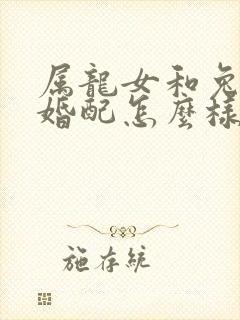 属龍女和兔
婚配怎麼樣
施存統